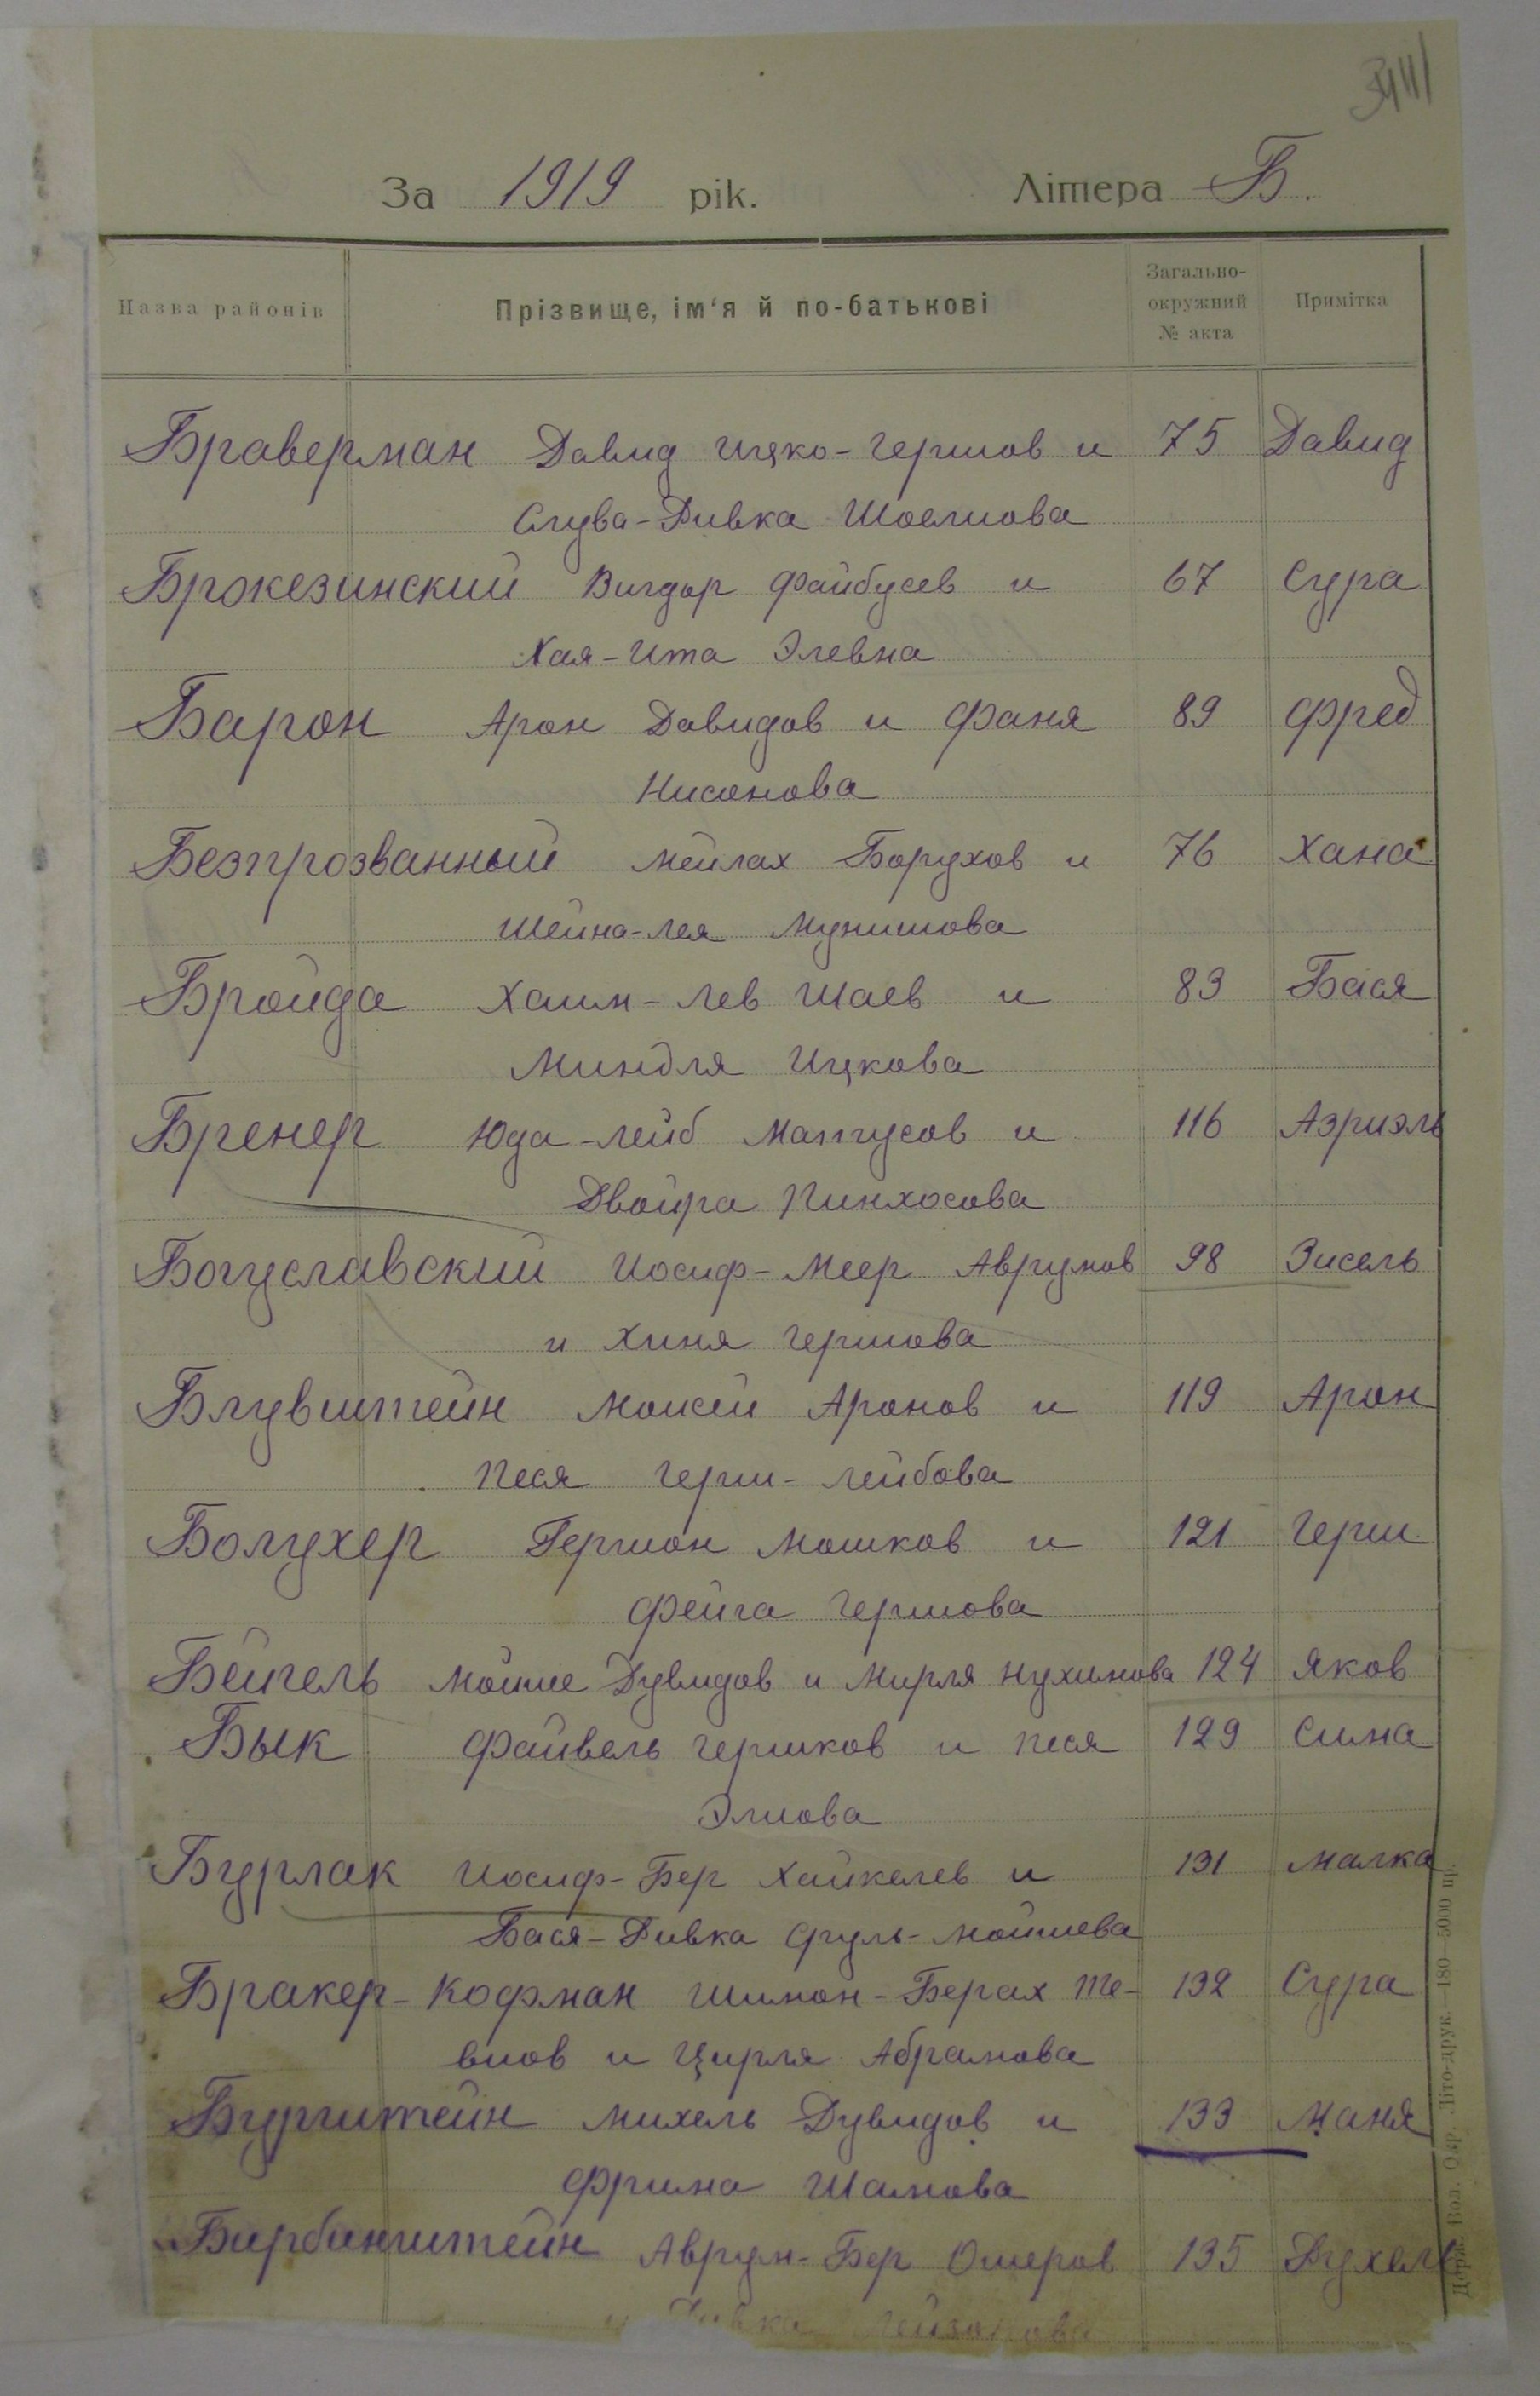 За 1919 рік. Літера Б.
Назва районів Прізвище, ім‘я й по-батькові Загально-окружний № акта Примітка
Браверман Давид Ицко-Гершов и 75 Давид
Слува-Ривка Шоелиова
Брокезинский Вигдор Файбусев и 67 Сура
Хая-Ита Элевна
Барон Арон Давидов и Фаня 89 Фред
Нисонова
Безпрозванный Мейлах Борухов и 76 Хана
Шейна-Лея Мунишова
Бройда Хаим-Лев Шаев и 83 Бася
Миндля Ицкова
Бренер Юда-Лейб Мапусов и 116 Азриэль
Двойра Пинхосова
Богуславский Иосиф-Меер Аврумов 98 Зисель
и Хиня Гершова
Блувштейн Моисей Аронов и 119 Арон
Песя Герш-Лейбова
Болухер Гершон Мошков и 121 Герш
Фейга Гершова
Бейгель Мойше Дувидов и Мирля Нухимова 124 Яков
Бык Файвель Гершков и Песя 129 Сима
Элиова
Бурлак Иосиф-Бер Хайкелев и 131 Малка
Бася-Ривка Сруль-Мойшева
Бракер-Кофман Шимон-Берах Те- 132 Сура
виов и Цирля Абрамова
Бурштейн Михель Дувидов и 133 Маня
Фрима Шамова
Бирбинштейн Аврум-Бер Ошеров 135 Рухель
и Ривка
Літо-друк.—180—5000 пр.